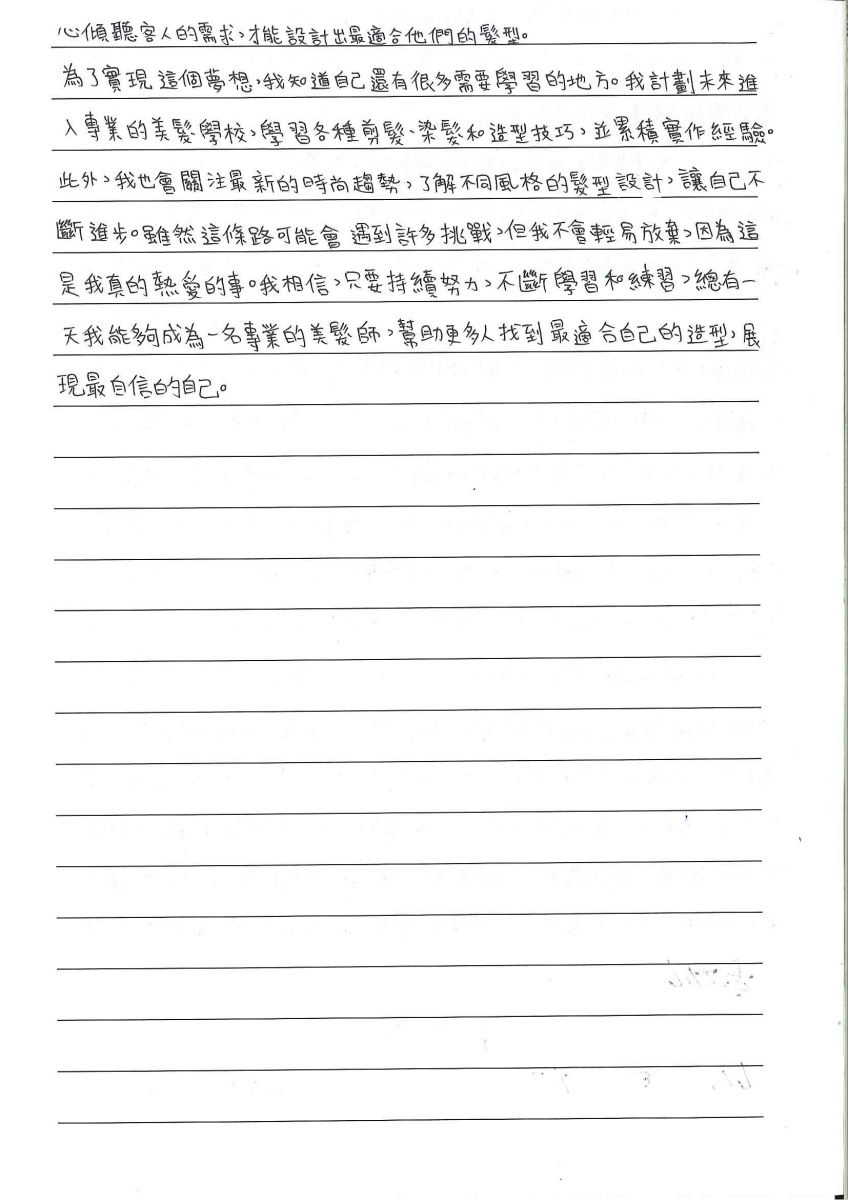 心傾聽客人的需求，才能設計出最適合他們的髮型。
為了實現這個夢想，我知道自己還有很多需要學習的地方。我計劃未來進
入專業的美髮學校，學習各種剪髮、染髮和造型技巧，並累積實作經驗。
此外，我也會關注最新的時尚趨勢，了解不同風格的髮型設計，讓自己不
斷進步。雖然這條路可能會遇到許多挑戰，但我不會輕易放棄，因為這
是我真的熱愛的事。我相信，只要持續努力，不斷學習和練習，總有一
天我能夠成為一名專業的美髮師，幫助更多人找到最適合自己的造型，展
現最自信的自己。